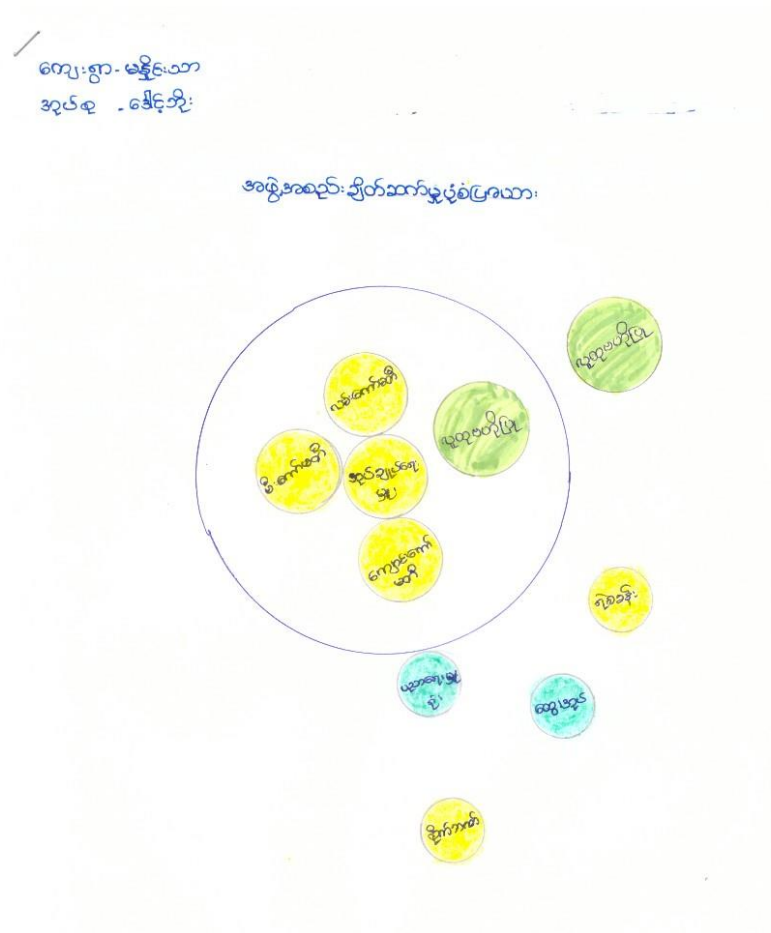 ကျေးရွာ - မနှိုင်းသာ
အုပ်စု - ဒေါင့်ဘိုး
အဖွဲ့အစည်းချိတ်ဆက်မှုပုံစံပြဇယား
လူထုဗဟိုပြု
လမ်းကော်မတီ
လူထုဗဟိုပြု
မီးကော်မတီ
အုပ်ချုပ်ရေး
မှူး
ကျောင်းကော်
မတီ
ရဲစခန်း
ပညာရေးမှူး
ရုံး
ထွေ/အုပ်
စိုက်ဘဏ်